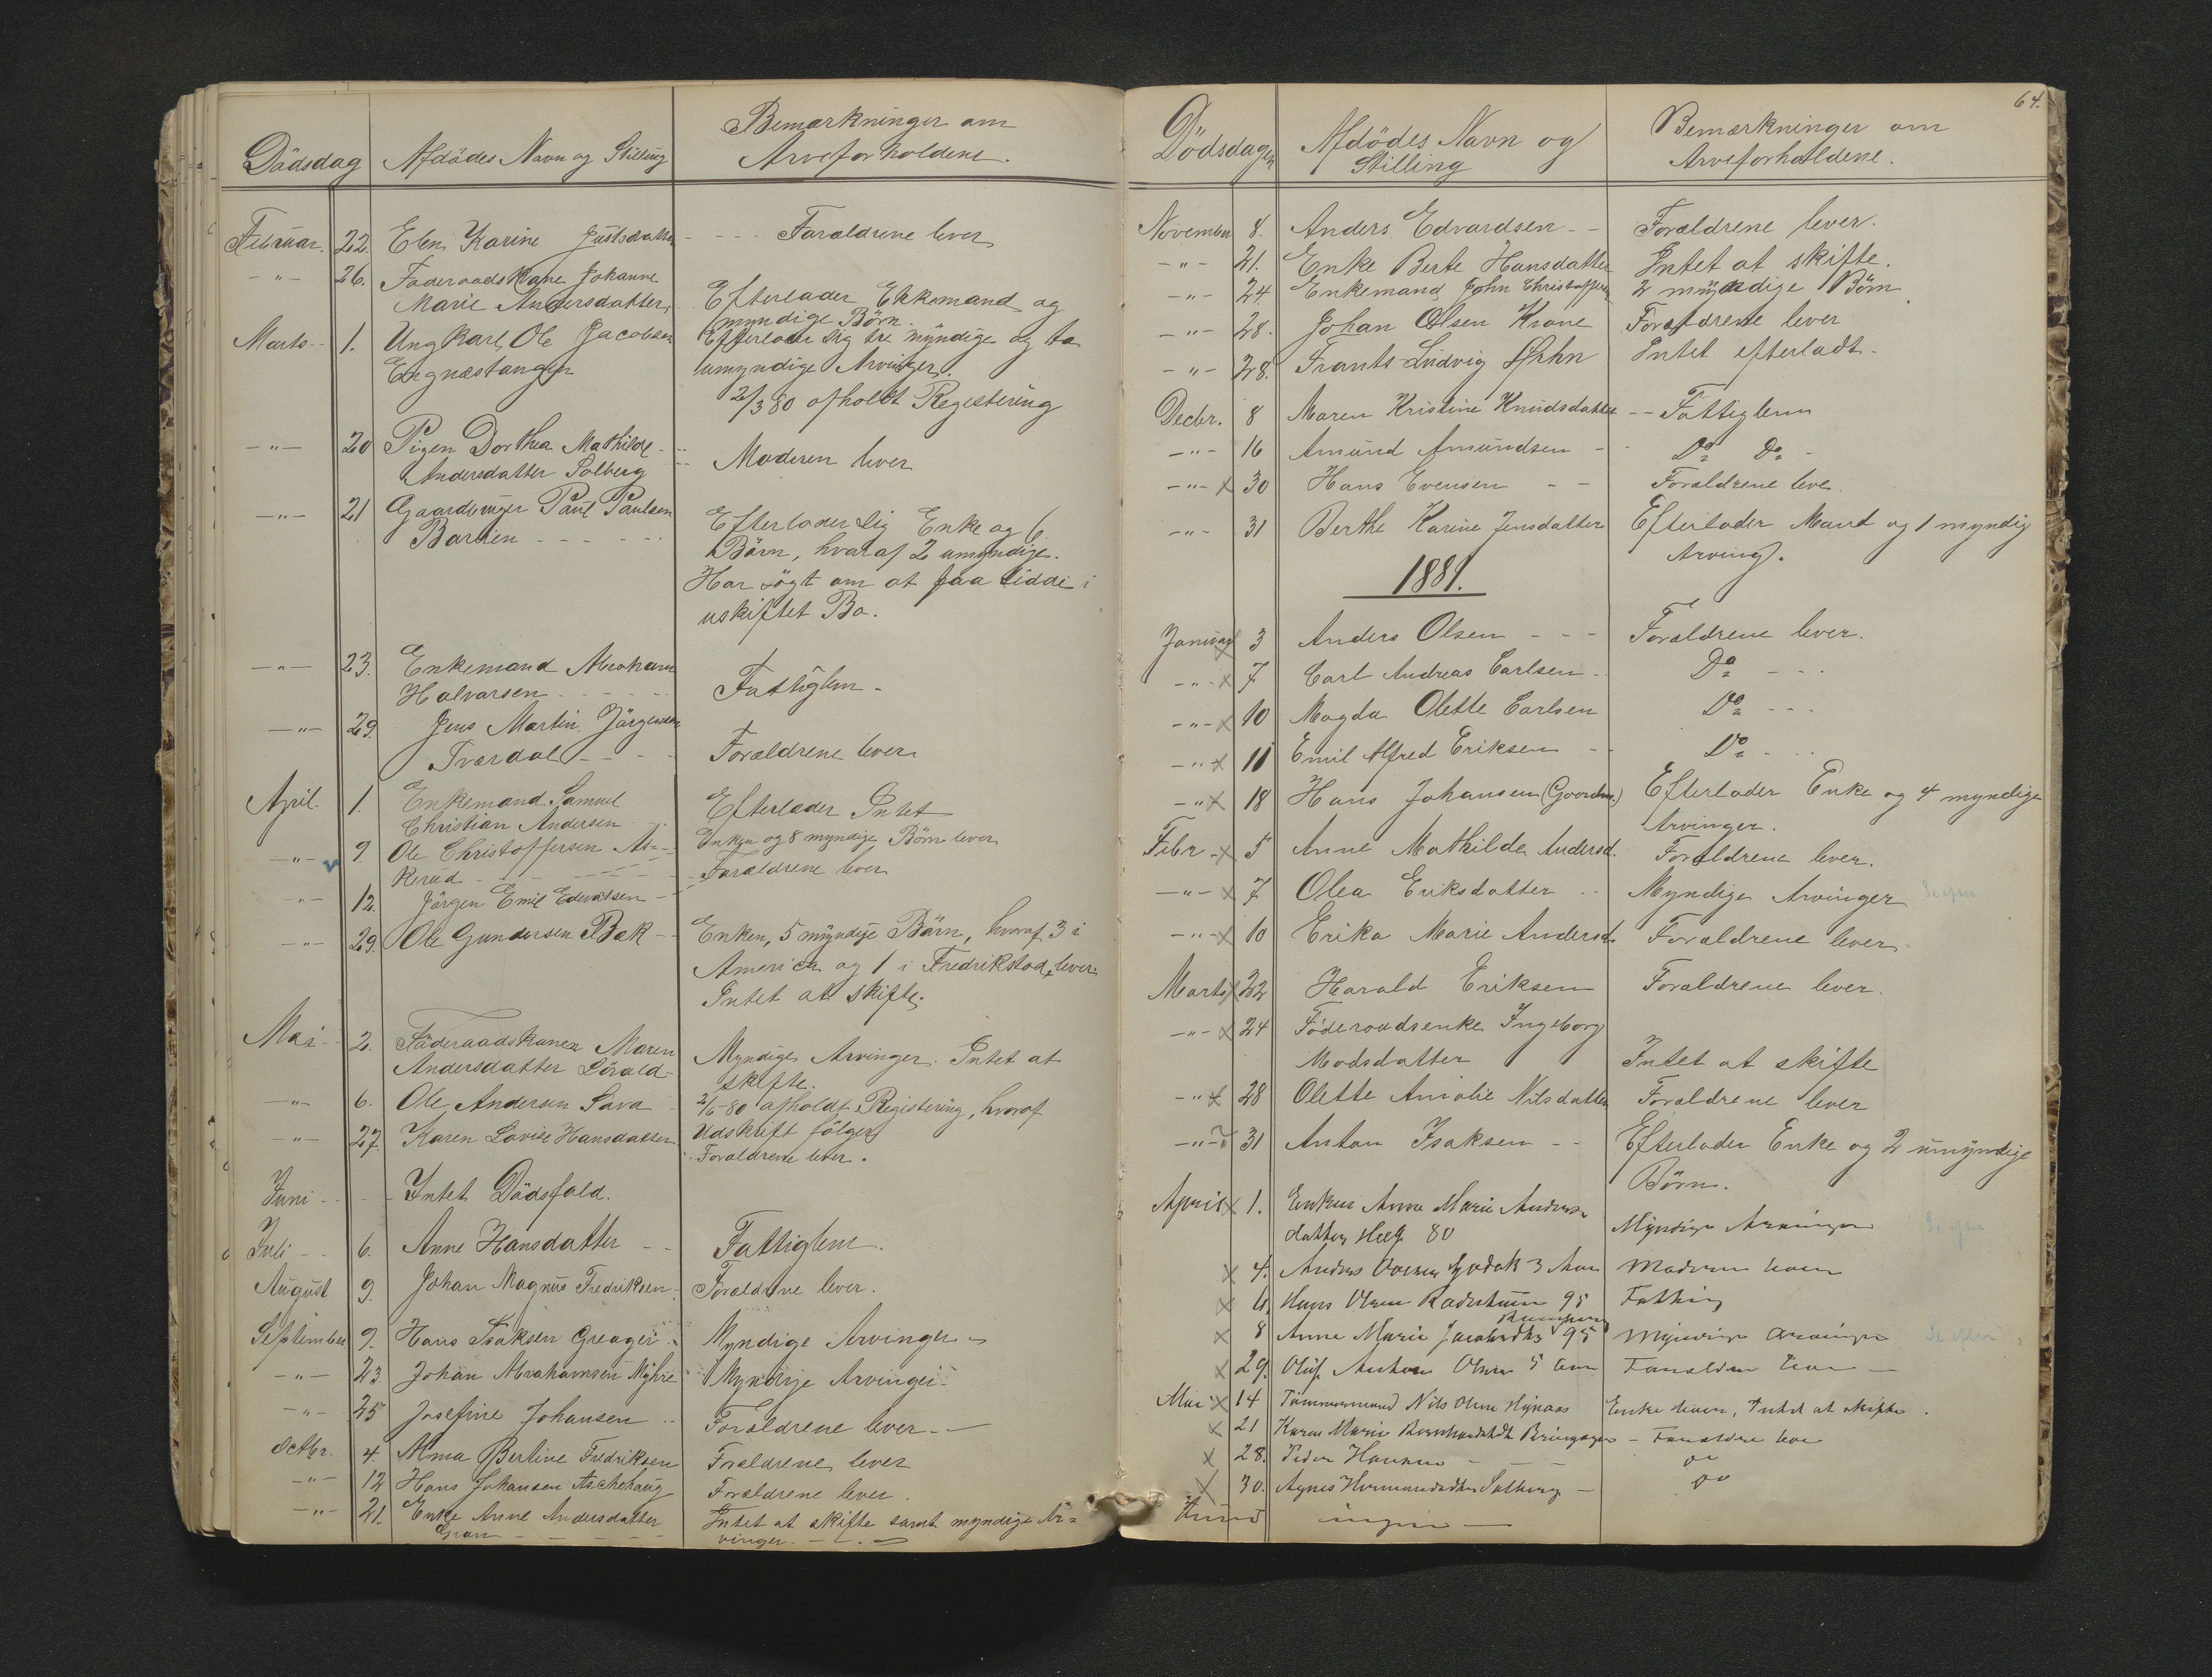 Dødsdag Afdødes Navn og Stilling Bemærkninger om
Arveforholdene.
Februar. 22. Elen Karine Justsdatter - - - Forældrene lever
-"- 26. Føderaadskone Johanne
Marie Andersdatter Efterlader Ekkemand og
myndige Børn.
Marts - 1. Ungkarl Ole Jacobsen Efterlader sig tre myndige og to
Engnæstangen umyndige Arvinger.
2/3 80 afholdt Registering
-"- 20 Pigen Dorthea Mathilde
Andersdatter Solberg Moderen lever
-"- 21 Gaardbruger Paul Paulsen Efterlader sig Enke og 6
Børn, hvoraf 2 umyndige.
Har søgt om at faa sidde i
uskiftet Bo.
-"- 23. Enkemand Abraham
Halvorsen Fattiglem -
-"- 29. Jens Martin Jørgensen
Tværdal Forældrene lever
April. 1. Enkemand Samuel Efterlader Intet
Christian Andersen
-"- 9. Ole Christoffersen As= Enken og 8 myndige Børn lever
kerud
-"- 12. Jørgen Emil Edvardsen Forældrene lever
-"- 29. Ole Gundersen Bak - Enken, 5 myndige Børn, hvoraf 3 i
America og 1 i Fredrikstad, lever
Intet at skifte.
Mai - 2. Føderaadskonen Maren Myndige Arvinger. Intet at
Andersdatter skifte.
-"- 6. Ole Andersen 2/6-80 afholdt Registering, hvoraf
Udskrift følger
-"- 27. Karen Lovise Hansdatter Forældrene lever.
Juni - - - Intet Dødsfald.
Juli - - 6. Anne Hansdatter - - Fattiglem.
August 9. Johan Magnus Fredriksen Forældrene lever.
September 9. Hans Isaksen Greager Myndige Arvinger
-"- 23. Johan Abrahamsen Myhre Myndige Arvinger
-"- 25 Josefine Johansen Forældrene lever - -
Octbr. 4. Anna Bertine Fredriksen Forældrene lever
-"- 12 Hans Johansen Aschehaug Forældrene lever.
-"- 21. Enke Anne Andersdatter Intet at skifte samt myndige Ar=
Gran vinger.
64.
Dødsdagen Afdødes Navn og Stilling Bemærkninger om
Arveforholdene.
November 8. Anders Edvardsen - - Forældrene lever.
-"- 21. Enke Berte Hansdatter Intet at skifte.
-"- 24. Enkemand John Christoffersen 2 myndige Børn
-"- 28. Johan Olsen Krone Forældrene lever
-"- 28. Frants Ludvig Intet efterladt -
Decbr. 8 Maren Kristine Knudsdatter - - Fattiglem
-"- 16 Amund Amundsen - Do Do -
-"- x 30 Hans Evensen - - Forældrene leve.
-"- 31 Berthe Karine Jensdatter Efterlader Mand og 1 myndig
Arving.
1881.
Januar x 3 Anders Olsen - - - Forældrene lever.
-"- x 7 Carl Andreas Carlsen - Do - - -
-"- x 10 Magda Olette Carlsen Do - - -
-"- x 11 Emil Alfred Eriksen - - Do - - -
-"- x 18 Hans Johansen (Goordm.) Efterlader Enke og 4 myndige
Arvinger.
Febr - x 5 Anne Mathilde Andersd. Forældrene lever.
-"- x 7 Olea Eriksdatter - - Myndige Arvinger
-"- x 10 Erika Marie Andersd. Forældrene lever
Marts x 22 Harald Eriksen Forældrene lever.
-"- x 24 Føderaadsenke Ingeborg
Madsdatter Intet at skifte
-"- x 28 Olette Amalie Nilsdatter Forældrene lever
-"- 31 Anton Isaksen - - Efterlader Enke og 2 umyndige
Børn.
April x 1. Enken Anne Marie Anders=
datter 80 Myndige Arvinger
x 4. Anders 3 Moderen lever
x 6. Hans Olsen 95 Fattig
x 8 Anne Marie 95 Myndige Arvinger
x 29. Oluf Anton Olsen 5 Forældre lever -
Mai x 14 Tømmermand Nils Olsen Enke lever, Intet at skifte.
x 21 Karen Marie - Forældre lever
x 28. Peder Hansen - Do
x 30. Agnes Solberg - Do
Juni ingen -